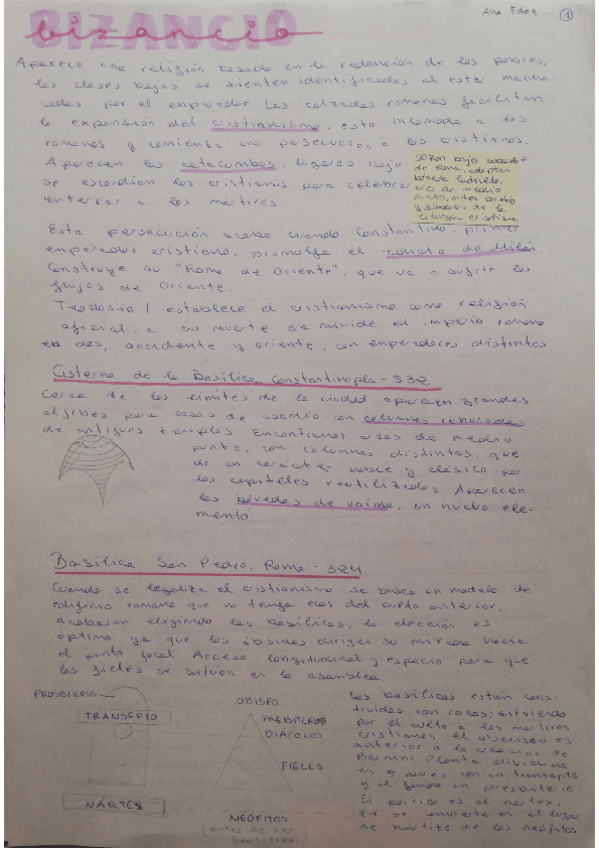 Ana Fdez
1
BIZANCIO
bizancio
Aparece una religión basada en la redención de los pobres,
las clases bajas se sienten identificadas al estar macha-
cadas por el emperador. Las calzadas romanas facilitan
la expansión del cristianismo, esto incomoda a los
romanos y comienza una persecución a los cristianos.
Aparecen las catacumbas, lugares bajo
se escondían los cristianos para celebrar
enterrar a los mártires
50km bajo
de Roma, adoptan
bóveda
arco de medio
punto,
y símbolos de la
cristiana
Esta persecución acaba cuando Constantino, primer
emperador cristiano, promulga el de Milán.
Construye su "Roma de Oriente", que va a sufrir los
flujos de Oriente.
Teodosio I establece el cristianismo como religión
oficial, a su muerte se divide el imperio romano
en dos, occidente y oriente, con emperadores distintos
Cisterna de la Basílica, Constantinopla - 532
Cerca de los límites de la ciudad aparecen grandes
aljibes para casos de asedio con columnas
de antiguos templos. Encontramos arcos de medio
punto, con columnas distintas, que
da un carácter noble y clásico por
los capiteles reutilizados. Aparecen
las bóvedas de vaida, un nuevo ele-
mento
Basílica San Pedro, Roma - 324
Cuando se legaliza el cristianismo se busca un modelo de
edificio romano que no tenga ecos del culto anterior,
acabaron eligiendo las basílicas, la elección es
óptima ya que los ábsides dirigen su mirada hacia
el punto focal. Acceso longitudinal y espacio para que
los fieles se sitúen en la asamblea.
PRESBITERIO
TRANSEPTO
NÁRTEX
OBISPO
PREBITEROS
DIÁCONOS
FIELES
NEÓFITOS
(antes de ser
bautizados)
Las basílicas están cons-
truidas con
por el culto a los mártires
cristianos, el es
anterior a la creación de
Bernini. Planta dividida
en 5 naves con un transepto
y al fondo un presbiterio.
El pórtico es el nártex,
que se convierte en el lugar
de bautizo de los neófitos